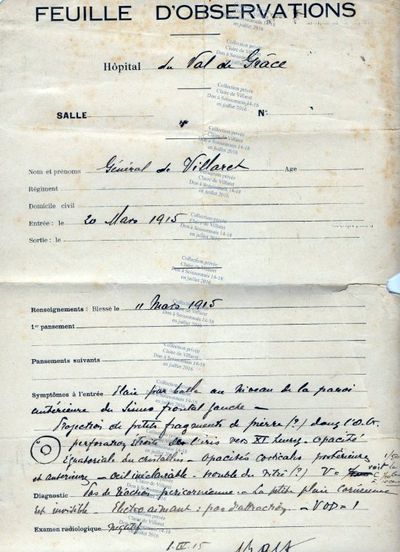 FEUILLE D'OBSERVATIONS
Collection privée
Claire de Villaret
Don à Soissonnais 14-18
en juillet 2016
Hôpital du Val de Grâce
SALLE N°
Nom et prénoms Général de Villaret Age
Régiment
Domicile civil
Entrée : le 20 Mars 1915
Sortie : le
Renseignements : Blessé le 11 Mars 1915
1er pansement
Pansements suivants
Symptômes à l'entrée Plaie par balle au niveau de la paroi
antérieure du Sinus frontal gauche —
Projection de petits fragments de pierre (?) dans l'O.G.
perforation étroite de l'iris vers XI heures - opacité
Équatoriale du cristallin - opacités corticales postérieure
et antérieure - œil inéclairable - trouble du vitré (?) V =
Diagnostic Pas de réaction péricornéenne - La petite plaie cornéenne
est invisible Electro aimant : pas d'attraction - VOD = 1
Examen radiologique négatif
15